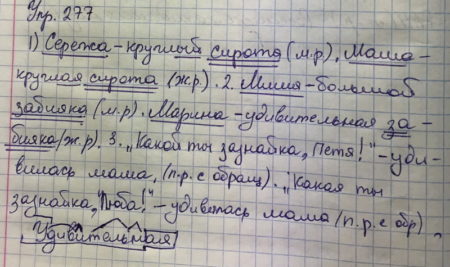 Упр. 277
1) Сережа - круглый сирота (м.р), Маша -
круглая сирота (ж.р). 2. Миша - большой
забияка (м.р). Марина - удивительная за-
бияка (ж.р). 3. „Какой ты зазнайка, Петя!" - уди-
вилась мама, (п.р. с обращ). „Какая ты
зазнайка, Люба!" - удивилась мама (п.р. с обр)
Удивительная